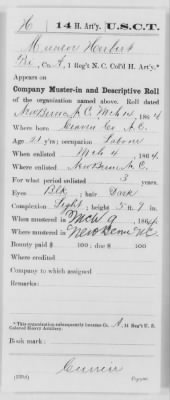 H | 14 H. Art'y. | U.S.C.T.
Herbert
Co. A, 1 Reg't N. C. Col'd H. Art'y.*
Appears on
Company Muster-in and Descriptive Roll
of the organization named above. Roll dated
New Berne N.C. Mch 4, 1864
Where born Craven Co N.C.
Age 21 y'rs; occupation Labour
When enlisted Mch 4, 1864
Where enlisted New Berne N.C.
For what period enlisted 3 years.
Eyes Blk; hair Dark
Complexion Light; height 5 ft. 7 in.
When mustered in Mch 9, 1864
Where mustered in New Berne N.C.
Bounty paid $ 100; due $ 100
Where credited
Company to which assigned
Remarks:
*This organization subsequently became Co. A, 14 Reg't U. S.
Colored Heavy Artillery.
Book mark:
Copyist.